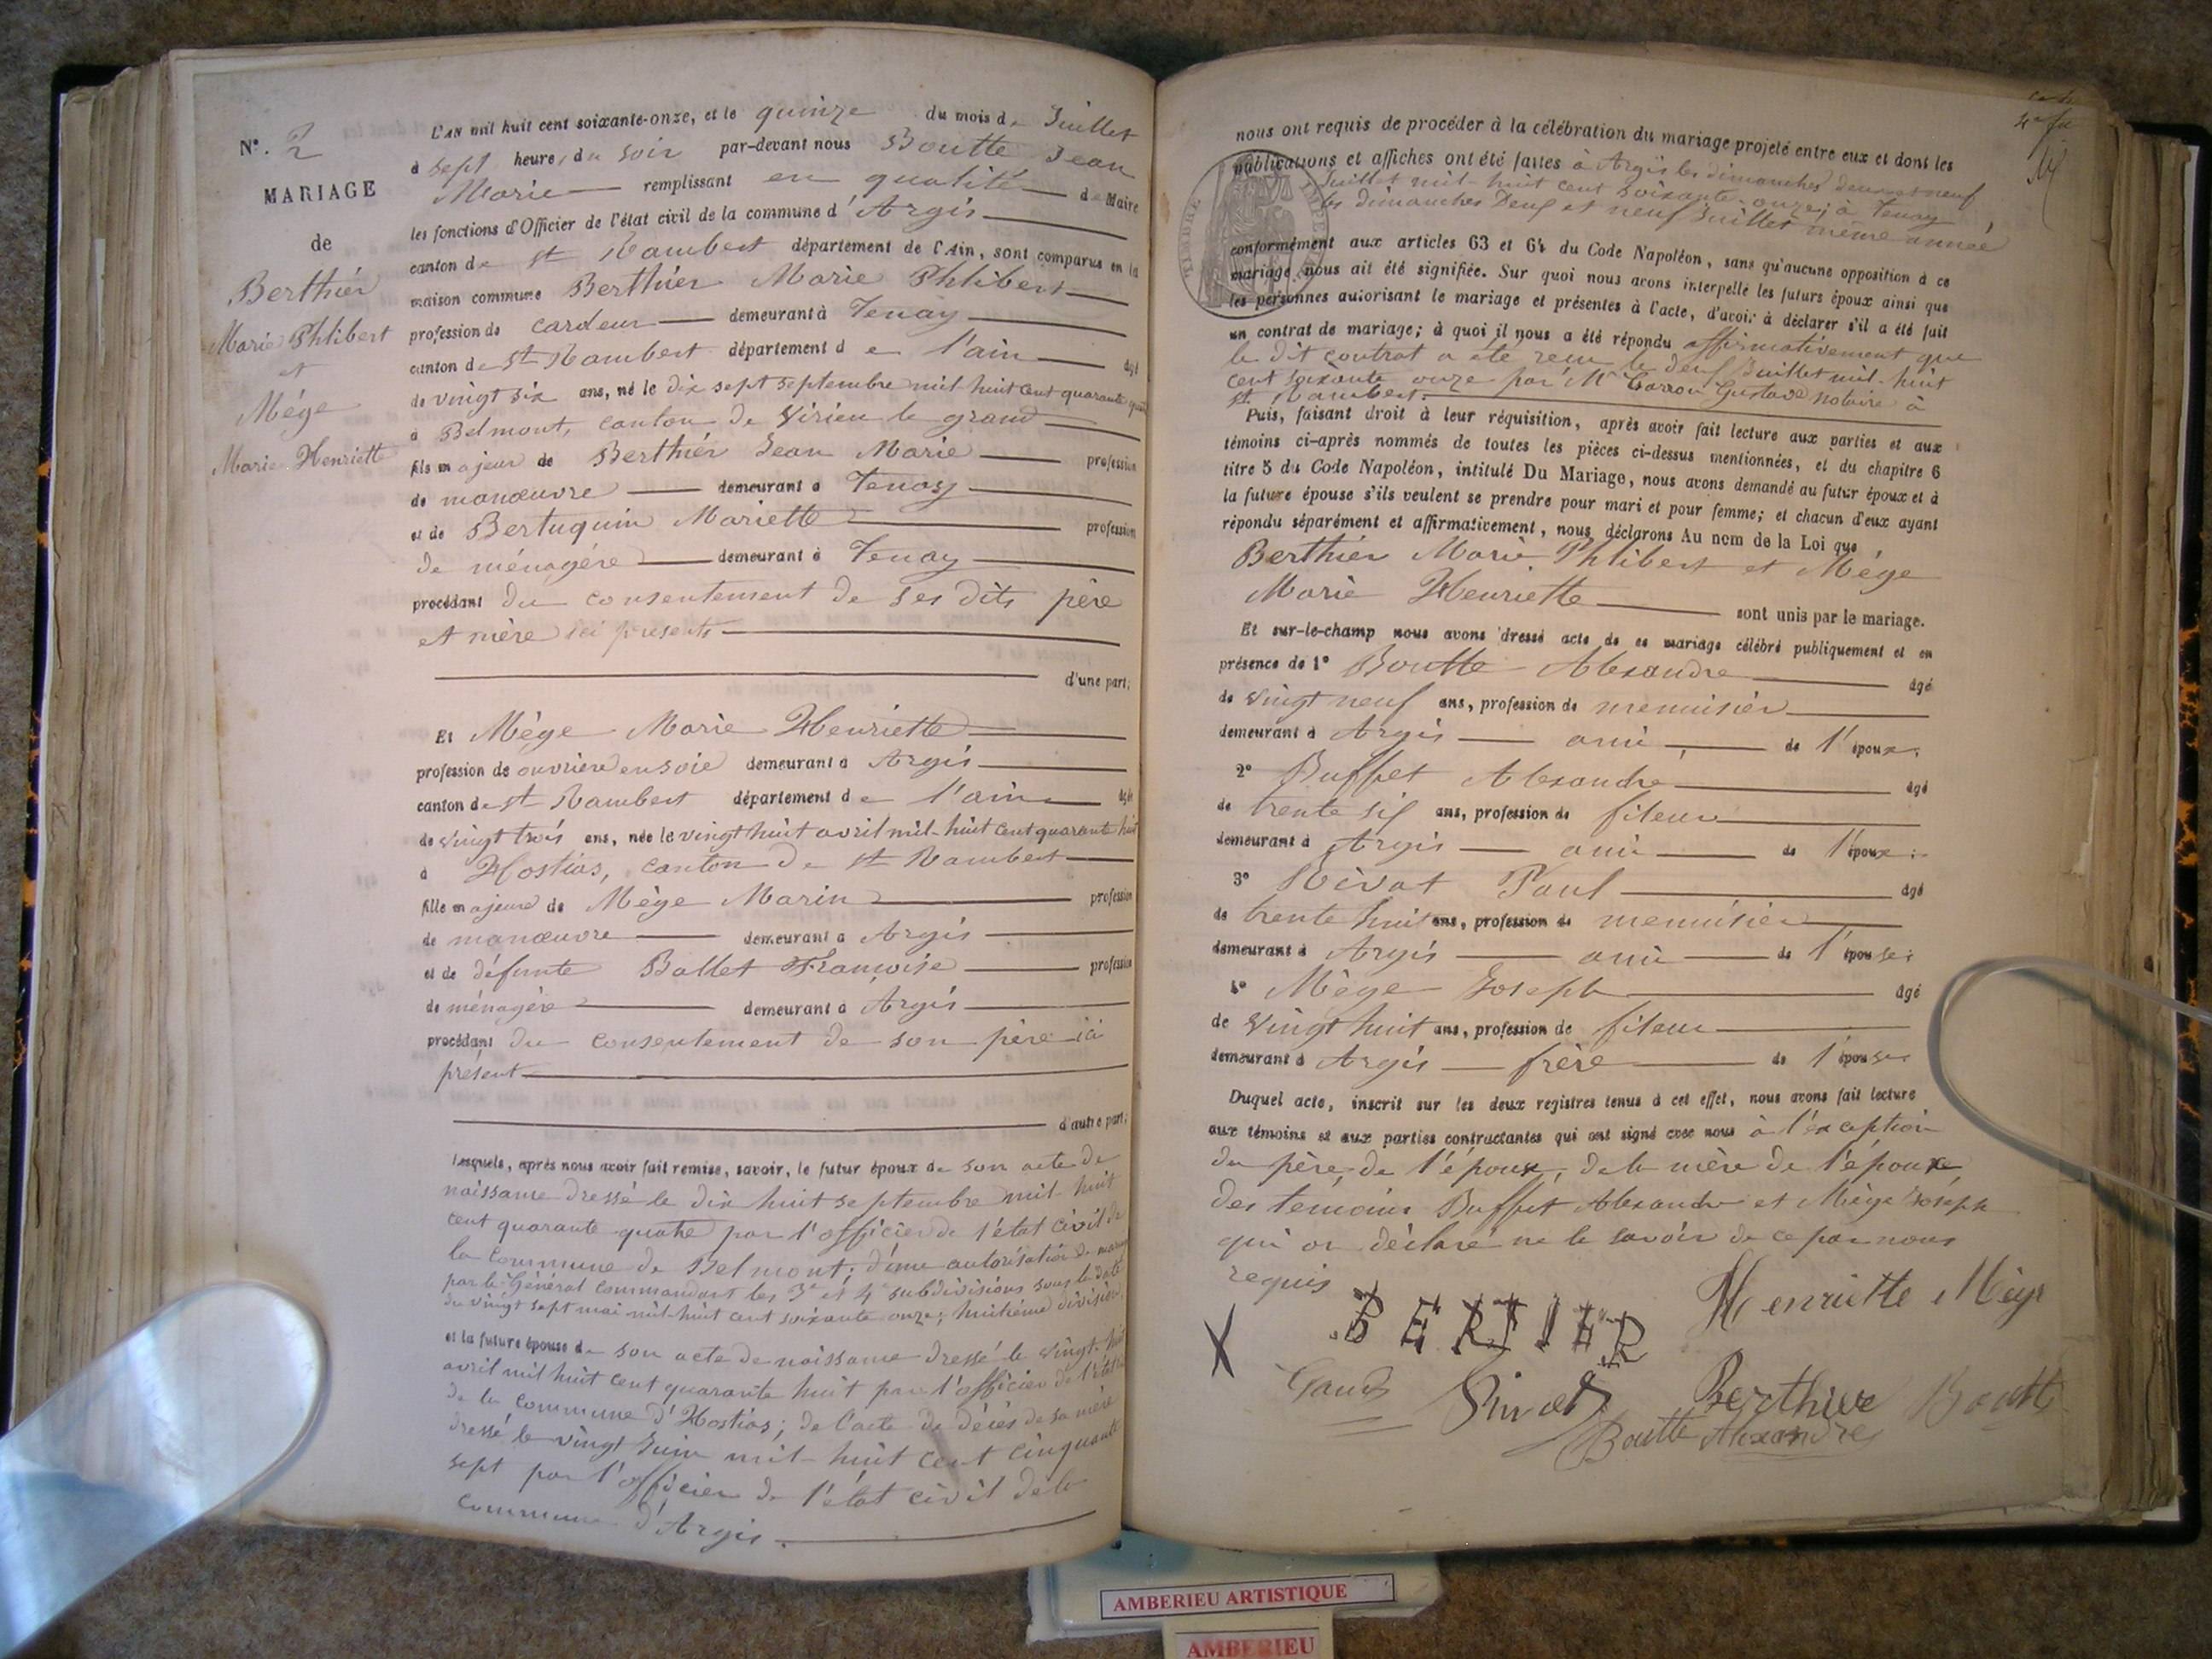 N°. 2
MARIAGE
de
Berthier
Marie Phlibert
et
Mége
Marie Henriette
L'AN mil huit cent soixante-onze, et le quinze du mois de Juillet
à sept heure, du soir par-devant nous Boutte Jean
Marie remplissant en qualité de Maire
les fonctions d'Officier de l'état civil de la commune d'Argis
canton de st Rambert département de l'Ain, sont comparus en la
maison commune Berthier Marie Phlibert
profession de cardeur demeurant à Tenay
canton de st Rambert département de l'ain âgé
de vingt six ans, né le dix sept septembre mil huit cent quarante
à Belmont, canton de Virieu le grand
fils majeur de Berthier Jean Marie profession
de manœuvre demeurant à Tenay
et de Bertuquin Mariette profession
de ménagère demeurant à Tenay
procédant du consentement de ses dits père
et mère ici présents
d'une part;
Et Mège Marie Henriette
profession de ouvrière en soie demeurant à Argis
canton de st Rambert département de l'ain âgée
de vingt trois ans, née le vingt huit avril mil-huit cent quarante huit
à Hostias, canton de st Rambert
fille majeure de Mège Marin profession
de manœuvre demeurant à Argis
et de défunte Ballet Françoise profession
de ménagère demeurant à Argis
procédant du consentement de son père ici
présent
d'autre part;
Lesquels, après nous avoir fait remise, savoir, le futur époux de son acte de
naissance dressé le dix huit septembre mil-huit
cent quarante quatre par l'officier de l'état civil de
la commune de Belmont; d'une autorisation de
par le Général commandant les 3e et 4e subdivisions sous la date
du vingt sept mai mil-huit cent soixante onze; huitième division
et la future épouse de son acte de naissance dressé le vingt-huit
avril mil huit cent quarante huit par l'officier de l'état
de la commune d'Hostias; de l'acte de décès de sa mère
dressé le vingt Juin mil-huit cent cinquante
sept par l'officier de l'état civil de la
commune d'Argis.
nous ont requis de procéder à la célébration du mariage projeté entre eux et dont les
publications et affiches ont été faites à Argis les dimanches deux et neuf
Juillet mil-huit cent soixante-onze; à Tenay
les dimanches Deux et neuf Juillet même année
conformément aux articles 63 et 64 du Code Napoléon, sans qu'aucune opposition à ce
mariage nous ait été signifiée. Sur quoi nous avons interpellé les futurs époux ainsi que
les personnes autorisant le mariage et présentes à l'acte, d'avoir à déclarer s'il a été fait
un contrat de mariage; à quoi il nous a été répondu affirmativement que
le dit contrat a été reçu le deux Juillet mil-huit
cent soixante onze par Me Gustave notaire à
st Rambert.
Puis, faisant droit à leur réquisition, après avoir fait lecture aux parties et aux
témoins ci-après nommés de toutes les pièces ci-dessus mentionnées, et du chapitre 6
titre 5 du Code Napoléon, intitulé Du Mariage, nous avons demandé au futur époux et à
la future épouse s'ils veulent se prendre pour mari et pour femme; et chacun d'eux ayant
répondu séparément et affirmativement, nous déclarons Au nom de la Loi que
Berthier Marie Phlibert et Mége
Marie Henriette sont unis par le mariage.
Et sur-le-champ nous avons dressé acte de ce mariage célébré publiquement et en
présence de 1° Boutte Alexandre âgé
de vingt neuf ans, profession de menuisier
demeurant à Argis ami de l'époux;
2° Buffet Alexandre âgé
de trente six ans, profession de fileur
demeurant à Argis ami de l'époux;
3° Rivat Paul âgé
de trente huit ans, profession de menuisier
demeurant à Argis ami de l'épouse;
4° Mège Joseph âgé
de vingt huit ans, profession de fileur
demeurant à Argis frère de l'épouse
Duquel acte, inscrit sur les deux registres tenus à cet effet, nous avons fait lecture
aux témoins et aux parties contractantes qui ont signé avec nous à l'exception
du père de l'époux, de la mère de l'époux
des témoins Buffet Alexandre et Mège Joseph
qui on déclaré ne le savoir de ce par nous
requis
X BERTIER Henriette Mége
Rivat Berthier Boutte
Boutte Alexandre
AMBERIEU ARTISTIQUE
AMBERIEU